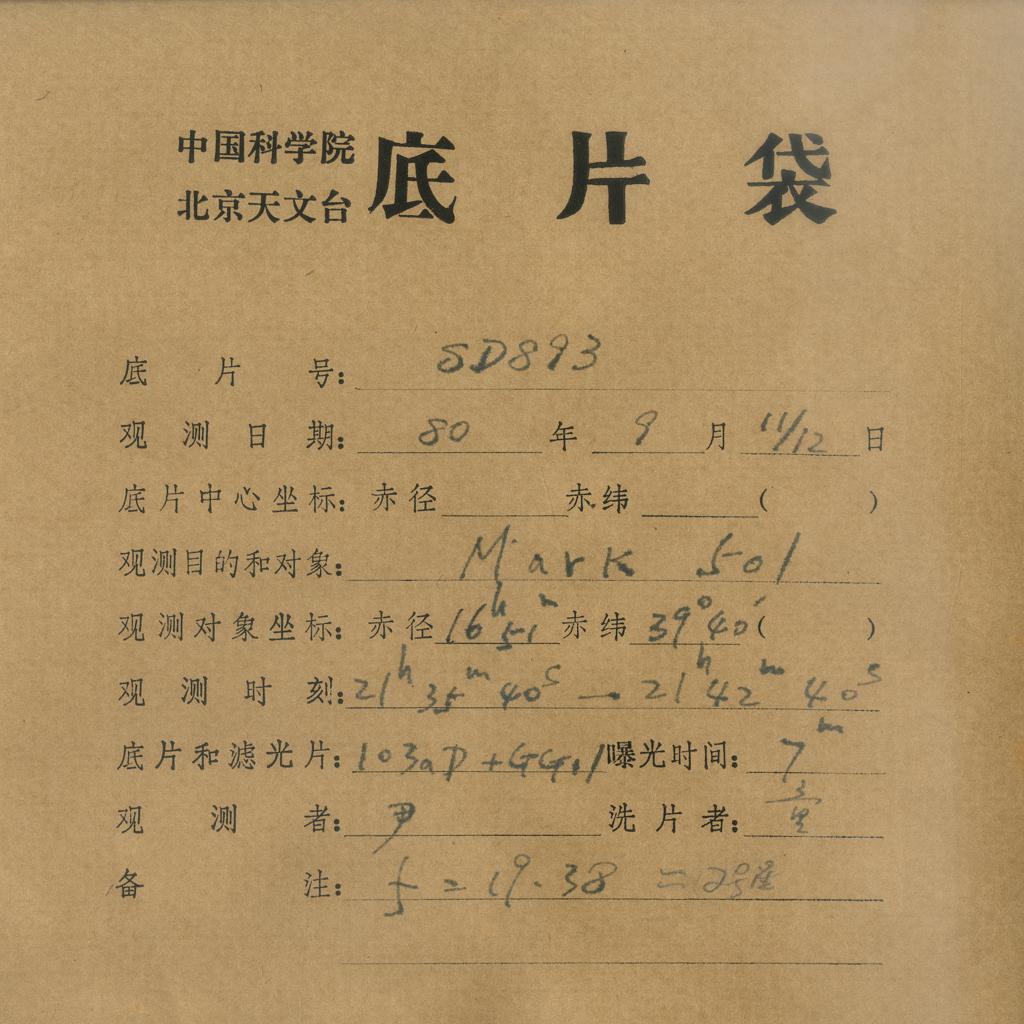 中国科学院
北京天文台
底片袋
底片号: SD893
观测日期: 80年9月11/12日
底片中心坐标: 赤径 赤纬 ( )
观测目的和对象: Mark 501
观测对象坐标: 赤径16h51m赤纬39°40′( )
观测时刻: 21h35m40s — 21h42m40s
底片和滤光片: 103aD+GG1 曝光时间: 7m
观测者: 尹 洗片者:
备注: f=19.38 二2号